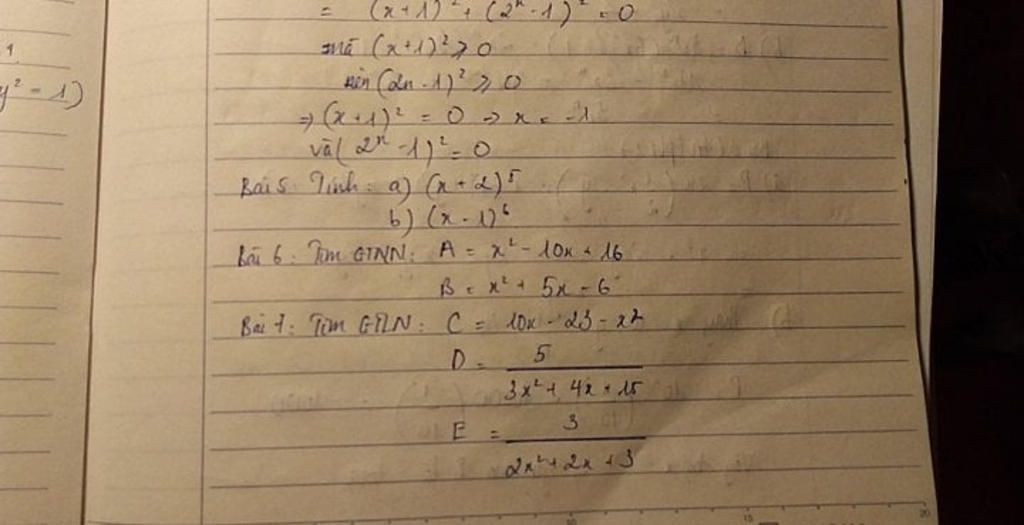 y² - 1)
= (x+1)² + (2ˣ - 1)² = 0
mà (x+1)² ≥ 0
nên (2x - 1)² ≥ 0
⇒ (x+1)² = 0 → x = -1
và (2ˣ - 1)² = 0
Bài 5: Tính: a) (x + 2)⁵
b) (x - 1)⁶
Bài 6: Tìm GTNN: A = x² - 10x + 16
B = x² + 5x - 6
Bài 7: Tìm GTLN: C = 10x - 23 - x²
D = 5 / 3x² + 4x + 15
E = 3 / 2x² + 2x + 3
10 15 20